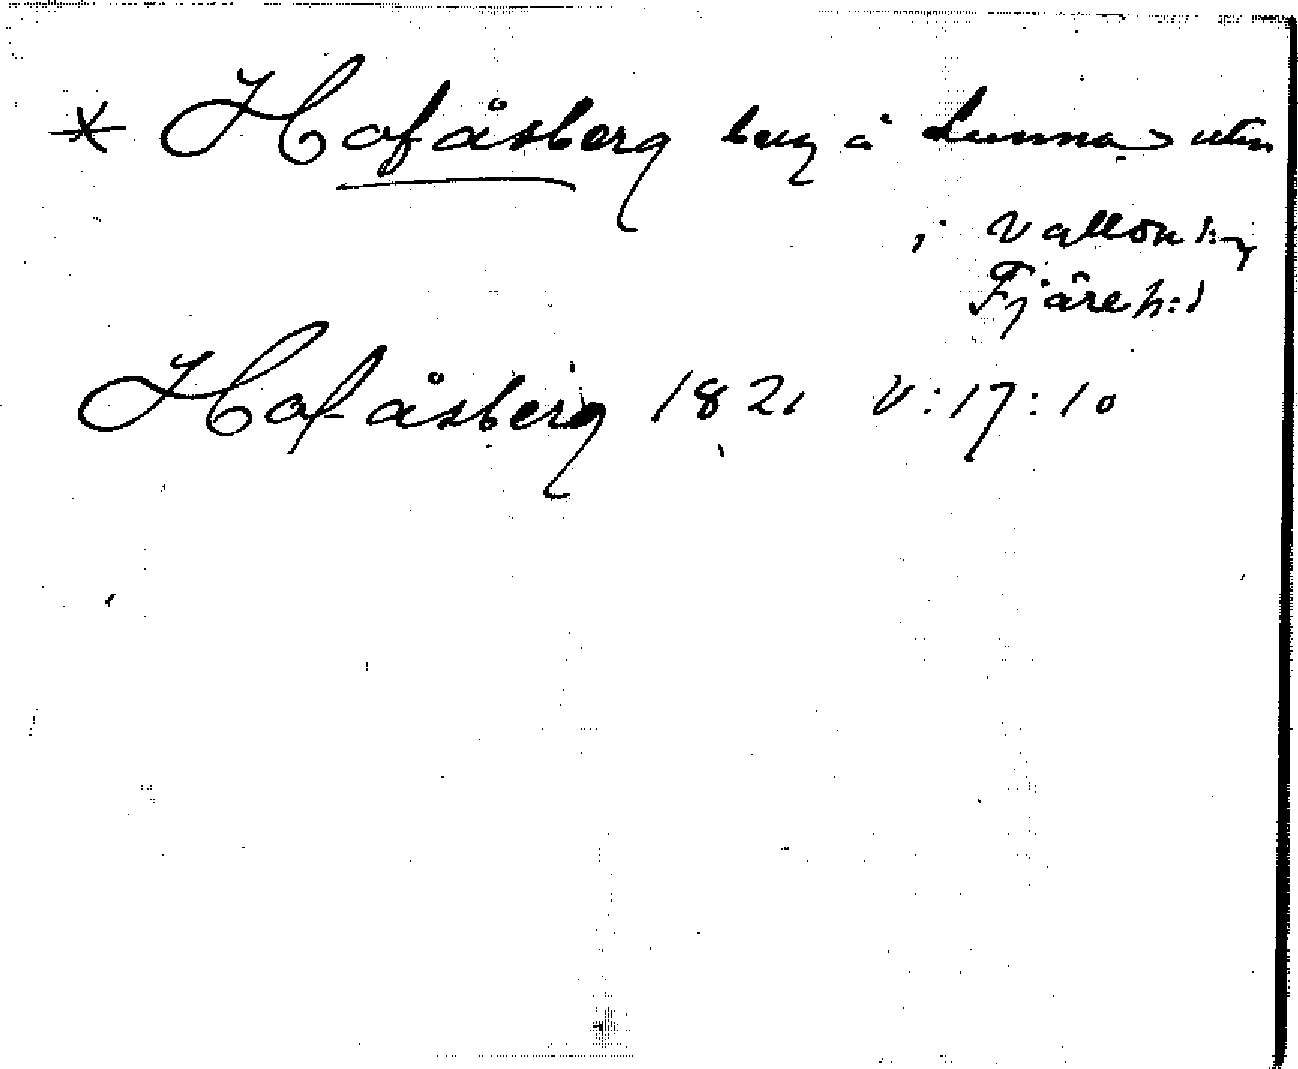 * Hofåsberg berg å Lunna uten
i Vallda s:n
Fjäre h:d
Hofåsberg 1821 V:17:10